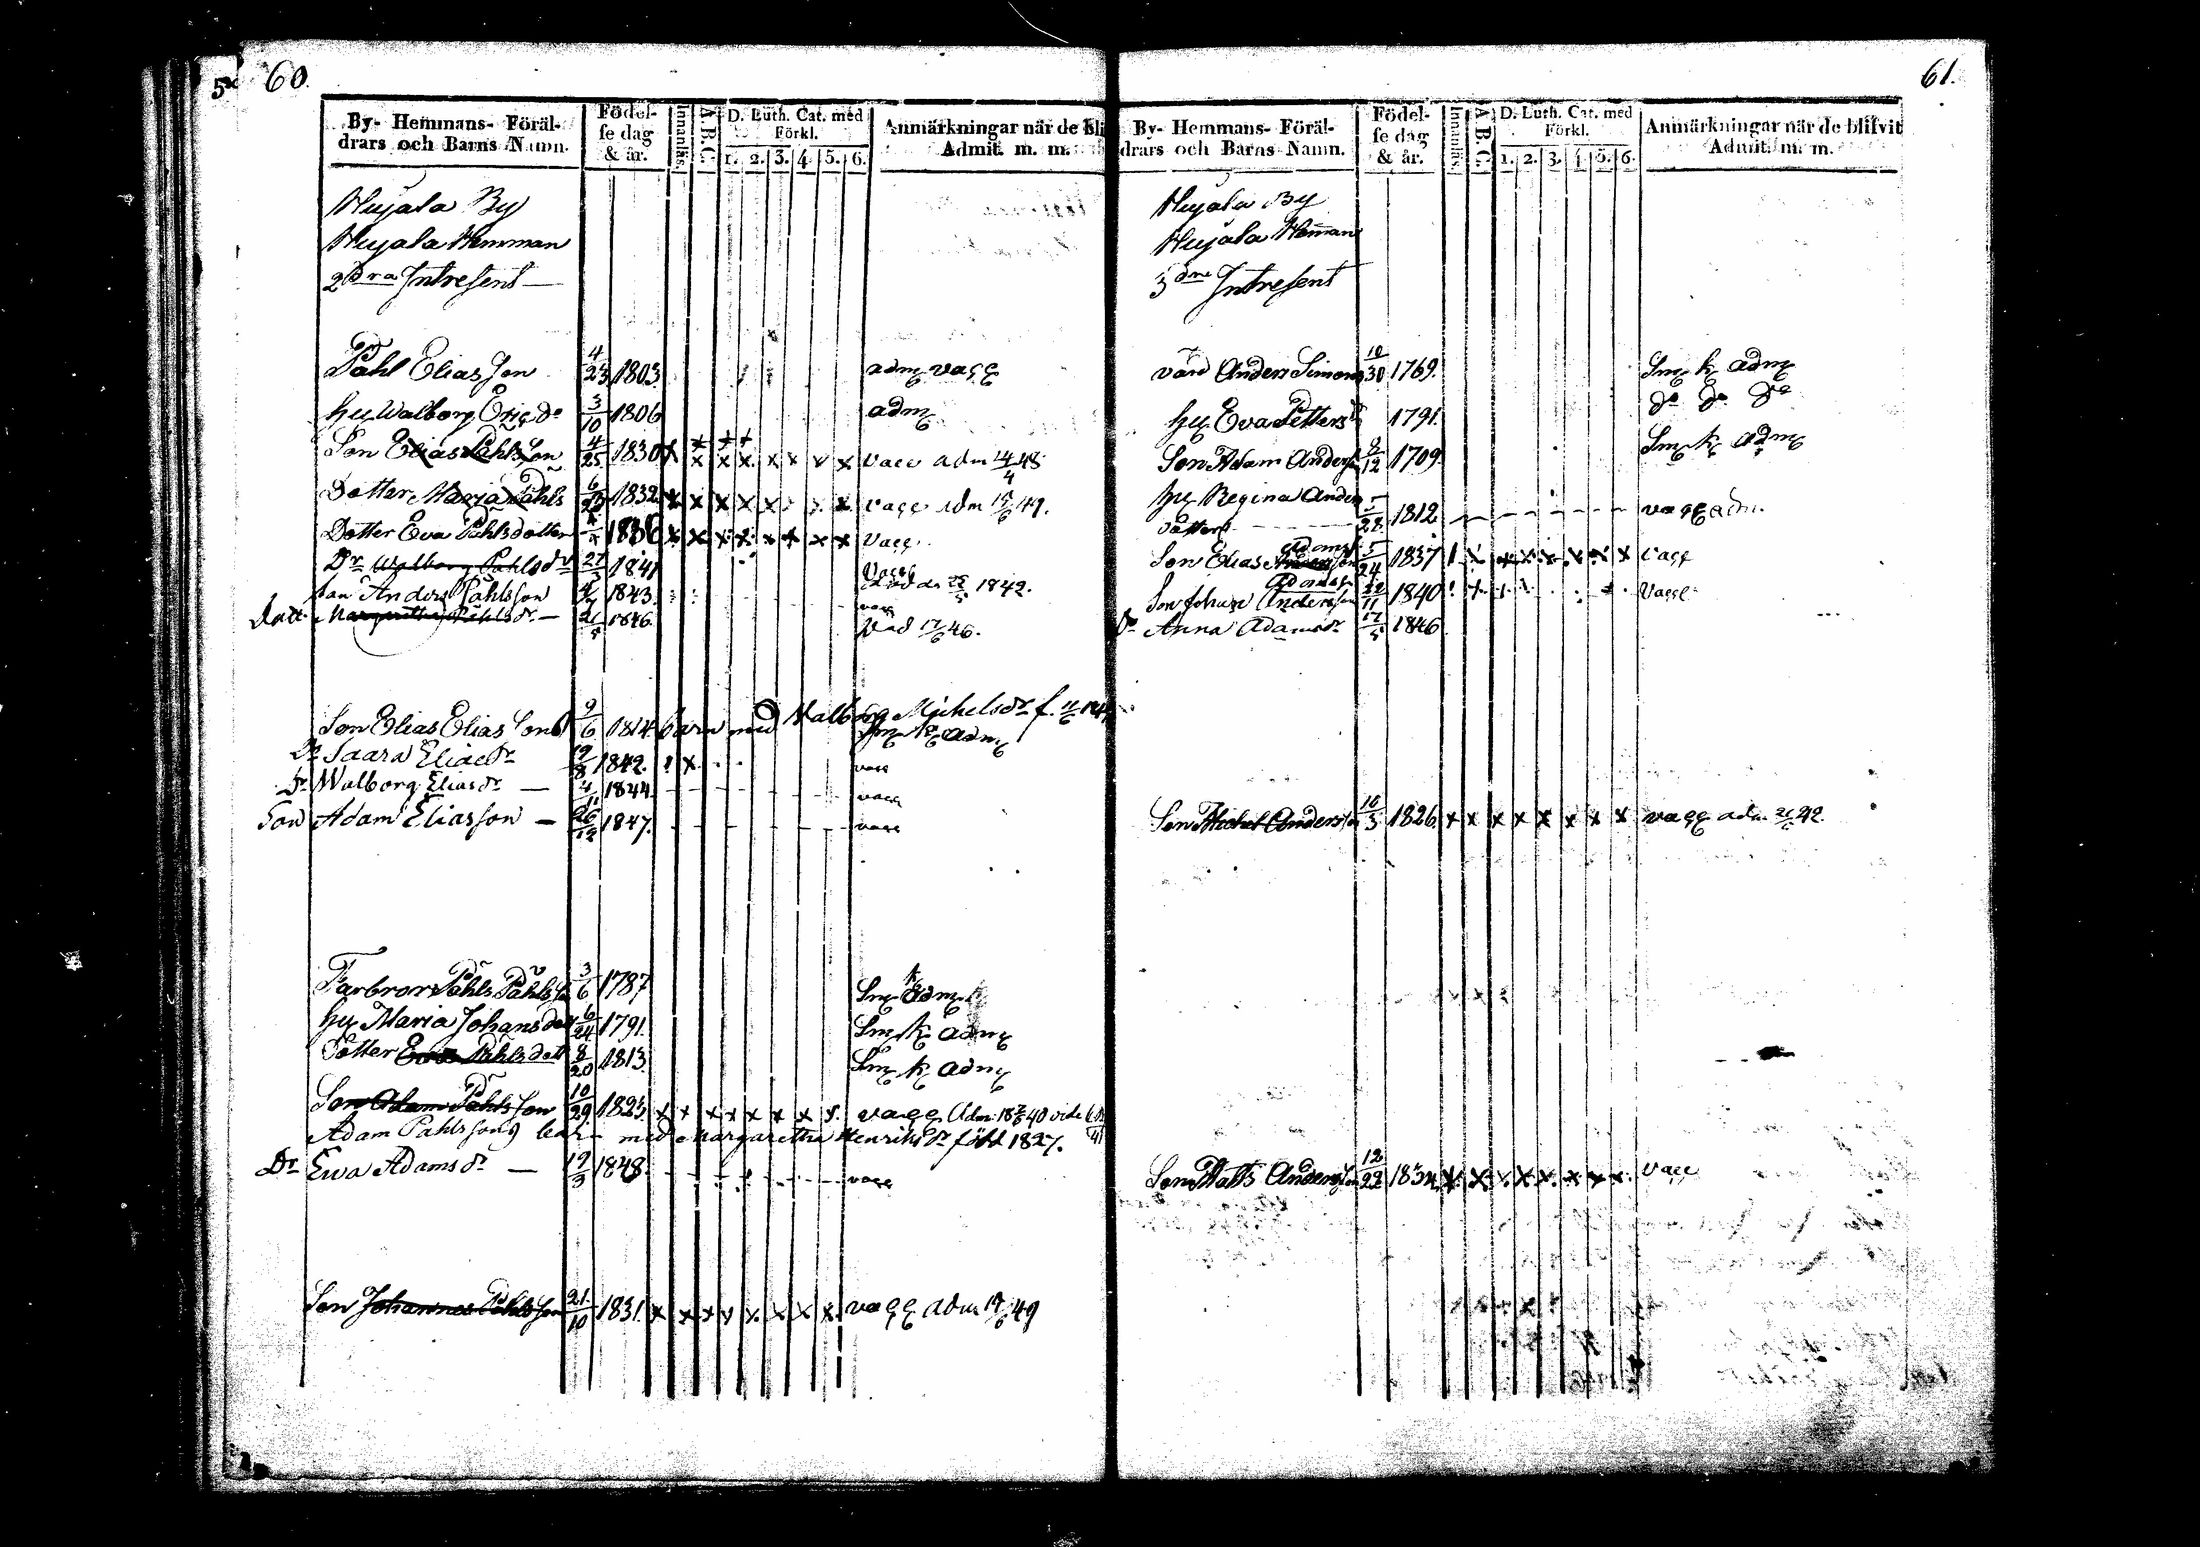 60.
By- Hemmans- Föräl-
drars och Barns Namn.
Födel-
se dag
& år.
Innanläs.
A B C.
D. Luth. Cat. med
Förkl.
1. 2. 3. 4. 5. 6.
Anmärkningar när de bli
Admit. m. m.
Hujala By
Hujala Hemman
2dra Intresent
Påhl Eliasson 4/23 1803. adm vacc
hu Walborg Eric dr 3/10 1806 adm
Son Elias Påhlsson 4/25 1830 x x x x x x x x vacc adm 14/4 48
Dotter Maria Påhls 1832 x x x x x x vacc adm 17/6 49.
Dotter Eva Påhlsdotter 1836 x x x x x x x x Vacc
Dr Walborg Påhlsdr 27/ 1841 Vacc
Son Anders Påhlsson 1843. 1842.
vacc
Dott. Margaretha Påhlsdr 21/5 1846. Död 17/6 46.
Son Elias Eliasson 9/6 1814 barn med Walborg Michelsdr f.
Sm k adm
Dr Saara Eliaedr 19/8 1842. vacc
Dr Walborg Eliasdr 4/11 1844. vacc
Son Adam Eliasson 26/12 1847. vacc
Farbror Påhls Påhls 3/6 1787 Sm k adm
hu Maria Johansdott 6/24 1791. Sm k adm
Dotter Ewa Påhlsdott 8/20 1813. Sm k adm
Son Adam Påhlsson 10/29 1823 x x x x x x x x vacc Adm 40 vide
Adam Påhlssons barn med Margaretha Henriksdr född 1827.
Dr Ewa Adamsdr 19/3 1848. vacc
Son Johannes Påhlsson 21/10 1831. x x x x x x x x vacc adm 17/6 49
61.
By- Hemmans- Föräl-
drars och Barns Namn.
Födel-
se dag
& år.
Innanläs.
A B C.
D. Luth. Cat. med
Förkl.
1. 2. 3. 4. 5. 6.
Anmärkningar när de blifvit
Admit. m. m.
Hujala By
Hujala Hemman
3dne Intresent
värd Anders Simons 10/30 1769. Sm k adm
hu Eva Petters 1791. do do do
Son Adam Anders 9/12 1709. Sm k adm
hu Regina Anders
dotter 5/28 1812 vacc adm.
Adams
Son Elias Andersson 5/24 1837 vacc
Adams
Son Johan Andersson 22/11 1840 Vacc
Dr Anna Adamsdr 17/5 1846
Son Michel Andersson 10/3 1826 x x x x x x x x vacc adm 42.
Son Matts Andersson 12/22 1834 x x x x x x x x vacc